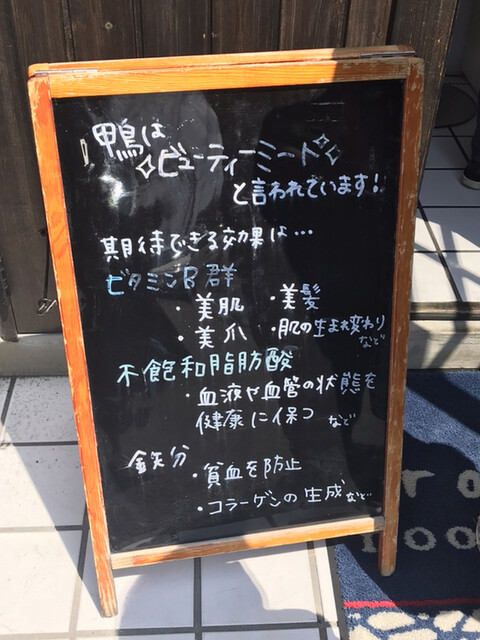 鴨は
✧ビューティーミート✧
と言われています!
期待できる効果は…
ビタミンB群
・美肌 ・美髪
・美爪 ・肌の生まれ変わり
など
不飽和脂肪酸
・血液や血管の状態を
健康に保つ など
鉄分
・貧血を防止
・コラーゲンの生成など